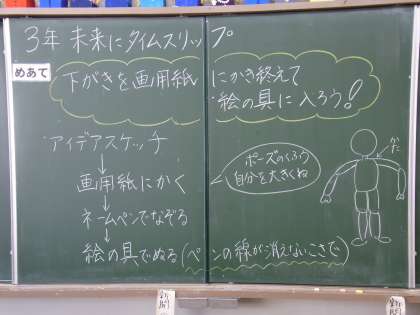 3年 未来にタイムスリップ
めあて
下がきを画用紙にかき終えて
絵の具に入ろう!
・アイデアスケッチ
↓
画用紙にかく
↓
ネームペンでなぞる
↓
絵の具でぬる(ペンの線が消えないこさで)
ポーズのくふう
自分を大きくね
かた